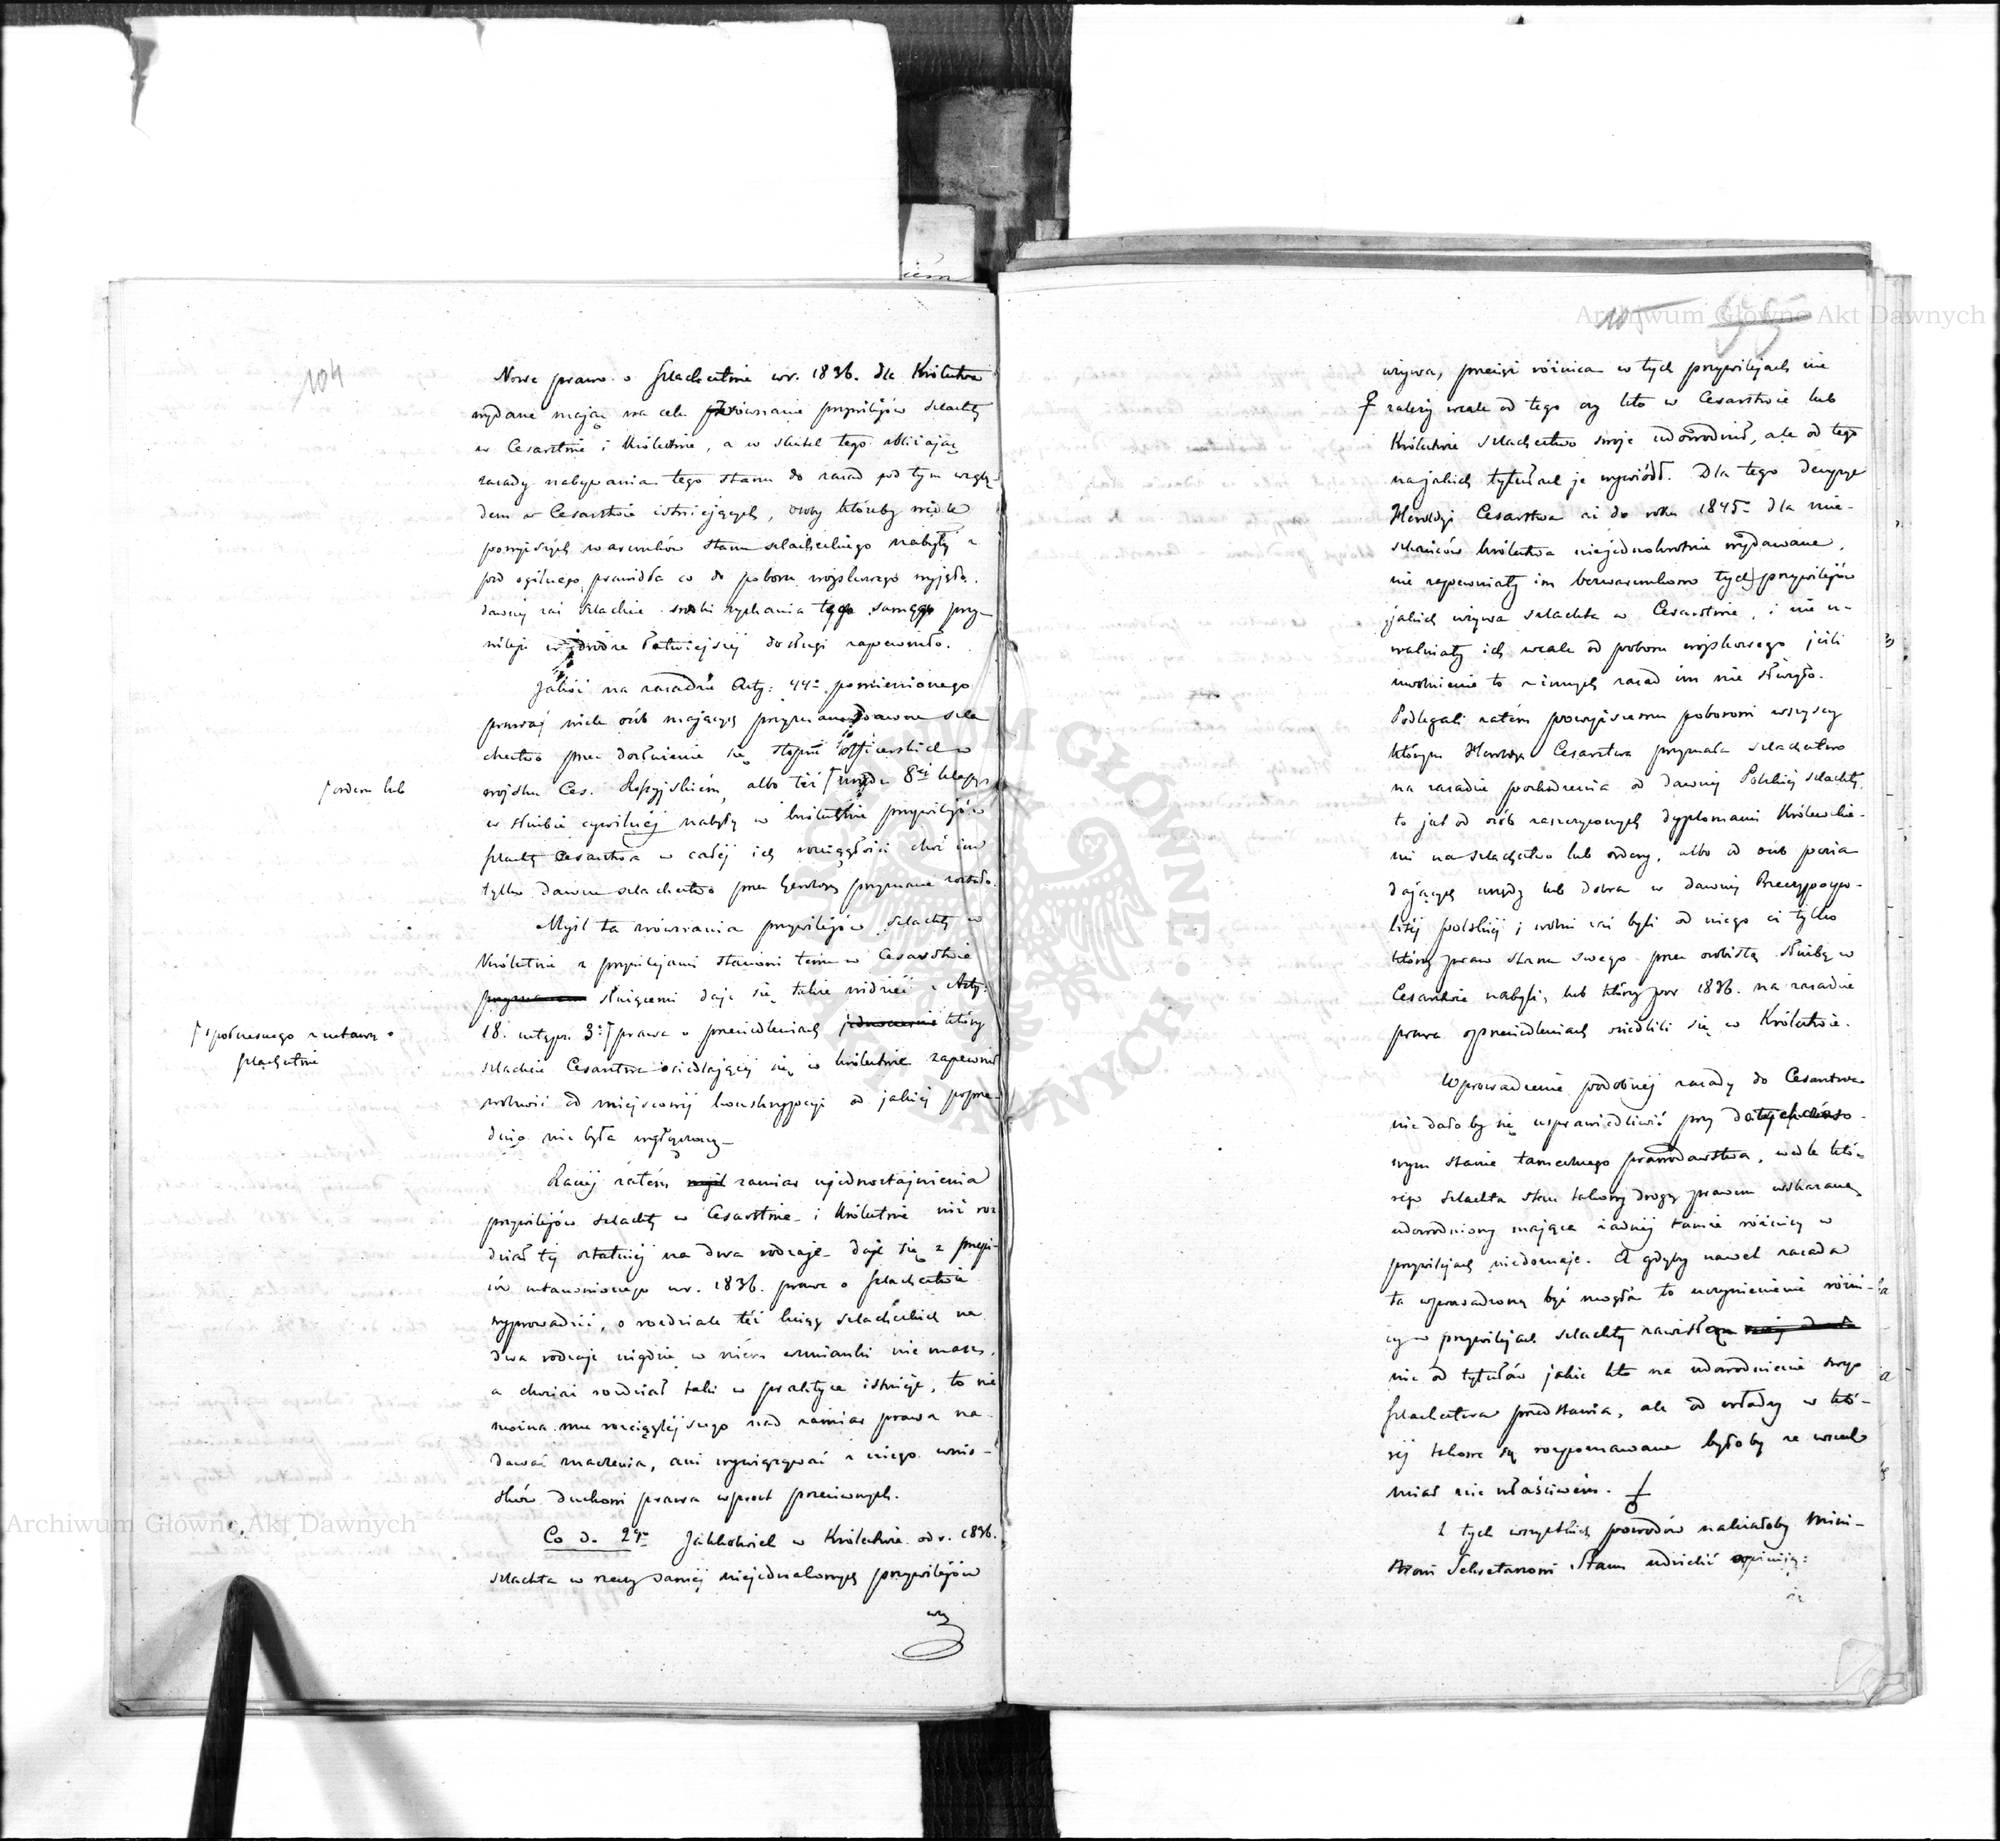 104
Nowe prawo o szlachectwie w r. 1836. dla Królestwa
wydane mając na celu porównanie przywilejów szlachty
w Cesarstwie i Królestwie, a w skutek tego zbliżając
zasady nabywania tego stanu do zasad pod tym wzglę-
dem w Cesarstwie istniejących, osoby któreby wedle
powyższych warunków stan szlachecki nabyły z
pod ogólnego prawidła co do poboru wojskowego wyjęła.
dawnej zaś szlachcie środki zyskania tego samego przy-
wileju w drodze łatwiejszej do sługi zapewniło.
Jakoż na zasadzie Arty: 44º pomienionego
prawa, wiele osób mających przyznane dawne szla
chectwo przez dosłużenie się stopni officerskich w
wojsku Ces. Rossyjskiém, albo też urzędu 8ej klassy
w służbie cywilnej nabyły w Królestwie przywilejów
szlachty Cesarstwa w całej ich rozciągłości choć im
tylko dawne szlachectwo przez Heroldyę przyznane zostało.
order lub
Myśl ta zrównania przywilejów szlachty w
Królestwie z przywilejami stanowi temu w Cesarstwie
służącemi daje się także widzieć z Arty:
18. ustępu 3º prawa o przesiedleniach który
szlachcie Cesarstwa osiedlającej się w Królestwie zapewnił
wolność od miejscowej konskrypcyi od jakiej poprze-
dnio nie była wyłączoną.
spółczesnego z ustawą o
szlachectwie
Raczej zatém zamiar ujednostajnienia
przywilejów szlachty w Cesarstwie i Królestwie niż roz
dział tej ostatniej na dwa rodzaje daje się z przepi-
sów ustanowionego w r. 1836. prawa o szlachectwie
wyprowadzić, o rozdziale też ksiąg szlacheckich na
dwa rodzaje nigdzie w niem wzmianki nie masz,
a chociaż rozdział taki w praktyce istnieje, to nie
można mu rozciąglejszego nad zamiar prawa na
dawać znaczenia, ani wyciągać z niego wnio-
sków duchowi prawa wprost przeciwnych.
Co do 2go Jakkolwiek w Królestwie od r. 1836.
szlachta w rzeczy samej niejednakowych przywilejów
uży
105
55
używa, przecież różnica w tych przywilejach nie
zależy wcale od tego czy kto w Cesarstwie lub
Królestwie szlachectwo swoje udowodnił, ale od tego
na jakich tytułach je wywiódł. Dla tego decyzye
Heroldyi Cesarstwa aż do roku 1845º dla mie-
szkańców Królestwa niejednokrotnie wydawane,
nie zapewniały im bezwarunkowo tych przywilejów
jakich używa szlachta w Cesarstwie, i nie u-
walniały ich wcale od poboru wojskowego jeśli
uwolnienie to z innych zasad im nie służyło.
Podlegali zatém powyższemu poborowi wszyscy
którym Heroldya Cesarstwa przyznała szlachectwo
na zasadzie pochodzenia od dawnej Polskiej szlachty,
to jest od osób zaszczyconych dyplomami Królewskie-
mi na szlachectwo lub ordery, albo od osób posia
dających urzędy lub dobra w dawnej Rzeczypospo-
litej polskiej; wolni zaś byli od niego ci tylko
którzy praw stanu swego przez osobistą służbę w
Cesarstwie nabyli, lub którzy po r 1836. na zasadzie
prawa o przesiedleniach osiedlili się w Królestwie.
Wprowadzenie podobnej zasady do Cesarstwa
nie dało by się usprawiedliwić przy dotychczaso-
wym stanie tamecznego prawodawstwa, wedle któ-
rego szlachta stan takowy drogą prawem wskazaną
udowodniony mająca żadnej tamże różnicy w
przywilejach niedoznaje. A gdyby nawet zasada
ta wprowadzoną być mogła to uczynienie różni-
cy w przywilejach szlachty zawisłą
nie od tytułów jakie kto na udowodnienie swego
szlachectwa przedstawia, ale od władzy w któ-
rej takowe są rozpoznawane byłoby ze wszech
miar nie właściwém.
Z tych wszystkich powodów należałoby Mini-
strowi Sekretarzowi Stanu udzielić opiniję:
że
Archiwum Główne Akt Dawnych
Archiwum Główne Akt Dawnych
ARCHIWUM GŁÓWNE AKT DAWNYCH